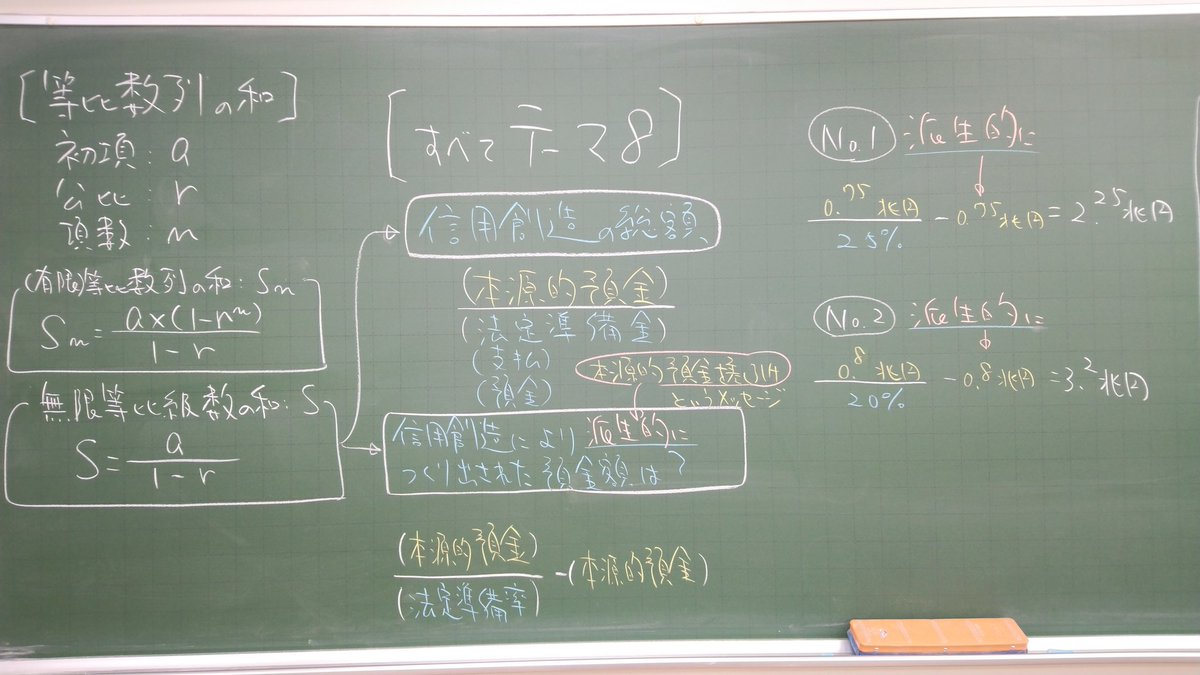 [等比数列の和]
初項：a
公比：r
項数：n
(有限)等比数列の和：Sn
Sn = a×(1-r^n) / 1-r
無限等比級数の和：S
S = a / 1-r
[すべてテーマ8]
信用創造の総額
(本源的預金)
(法定準備金)
(支払)
(預金)
本源的預金
というメッセージ
信用創造により派生的に
つくり出された預金額は？
(本源的預金) / (法定準備率) -(本源的預金)
No.1 派生的に
0.75兆円 / 25% - 0.75兆円 = 2.25兆円
No.2 派生的に
0.8兆円 / 20% - 0.8兆円 = 3.2兆円